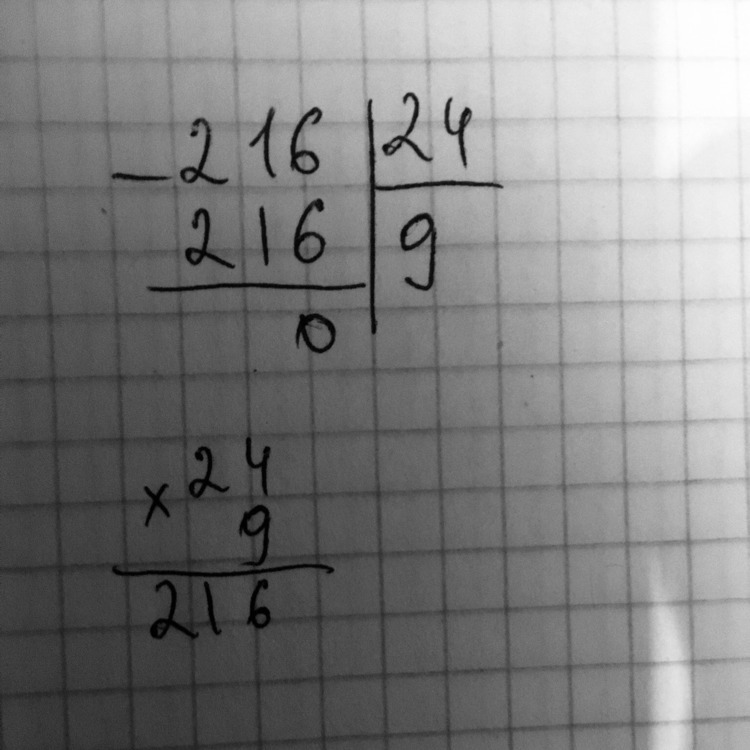 - 216 | 24
216 | 9
0
× 24
9
216